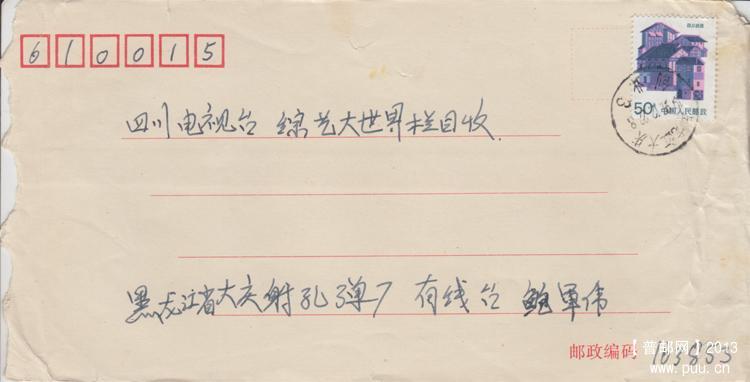 610015
四川民居
50分 中国人民邮政
四川电视台 综艺大世界栏目收
黑龙江省大庆射孔弹厂 有线台 鲍军伟
邮政编码 163853
【普邮网】2013
www.puu.cn